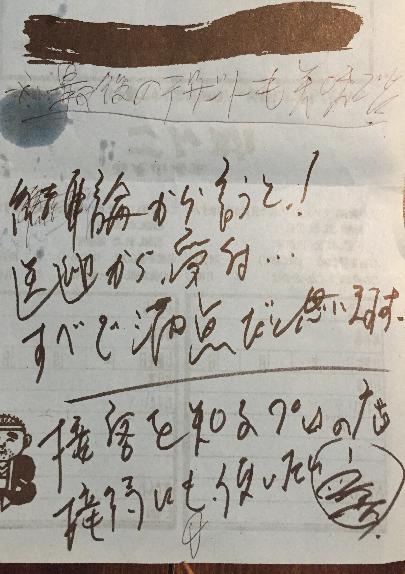 ※最後のデザートも美味でした
結論から言うと!
送迎から受付…
すべて満点だと思います。
接客を知るプロの
接待にも使いたい